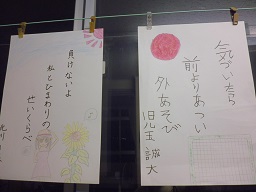 気づいたら
前よりあつい
外あそび
児玉 誠大
負けないよ
私とひまわりの
せいくらべ